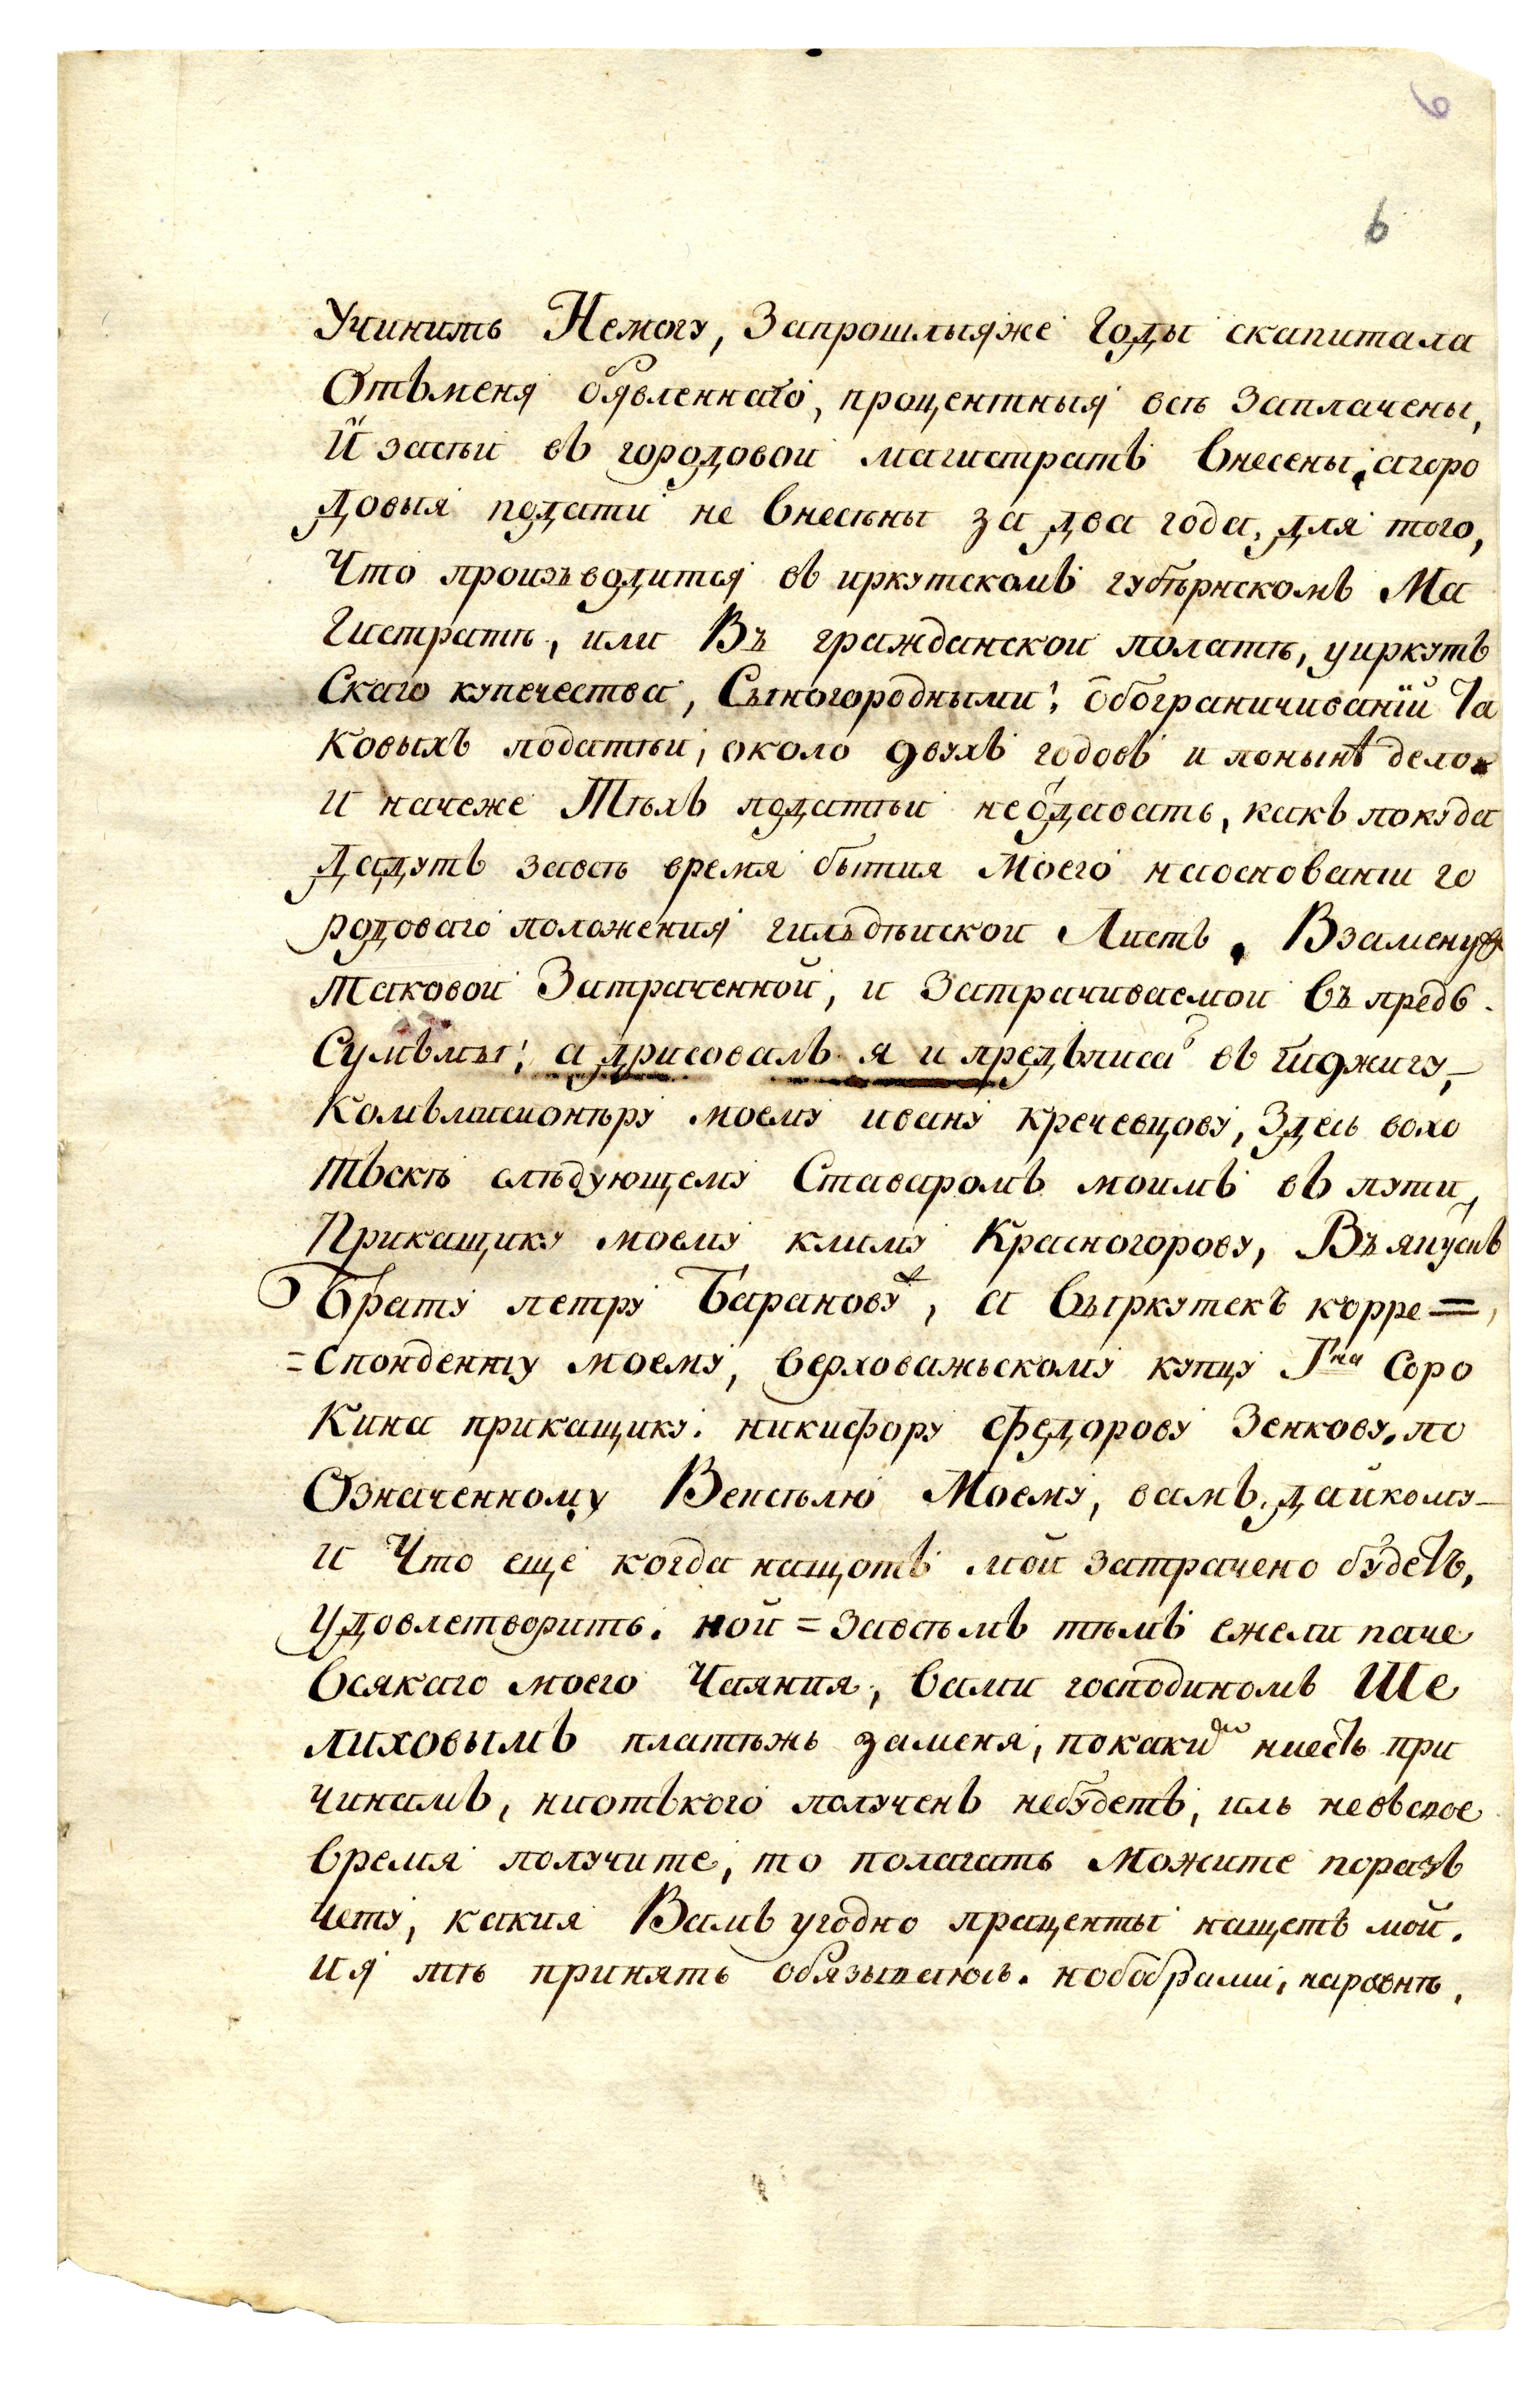 6
6
Учинить Немогу, Запрошлыяже Годы скапитала
Отъменя обявленнаго, процентныя всѣ заплачены,
И засѣи въ городовои магистратъ внесены, агоро
довыя подати не внесѣны за два года, для того,
Что произъводится въ иркутскомъ губѣрнскомъ Ма
гистратѣ, или Въ гражданскои полатѣ, уиркутъ
Скаго купечества, Сыногородными, обограничиванїи Та
ковыхъ податѣи, около двухъ годовъ и понынѣ дело
и начеже Тѣхъ податѣи неотдавать, какъ покуда
дадутъ завсѣ время бытия Моего наосновании го
родоваго положения гильдѣискои Листъ. Взамену
таковои Затраченной, и Затрачиваемои въпредъ
Сумъмы, адрисовалъ я и предъписалъ въ гиджигу,
Комъмисионѣру моему ивану кречевцову, Здесь вохо
тьскѣ слѣдующему Ставаромъ моимъ въ пути,
Прикащику моему климу Красногорову, Въякускъ
Брату петру Баранову, а выркутскъ корре=
=спонденту моему, верховажьскому купцу Гна Соро
кина прикащику. никифору федорову Зенкову, по
Означенному Вексѣлю Моему, вамъ, даикому
и Что еще когда нащотъ мой затрачено будетъ,
удовлетворить. ной = завсѣмъ тѣмъ ежели паче
Всякаго моего Чаяния, вами господиномъ Ше
лиховымъ платѣжь заменя, покакимъ ниесть при
чинамъ, ниотъкого полученъ небудетъ, иль невъсвое
время получите, то полагать Можите поразъ
чету, какия Вамъ угодно праценты нащетъ мой.
ия тѣ принять обязываюсь. нобобрами, наровнѣ,